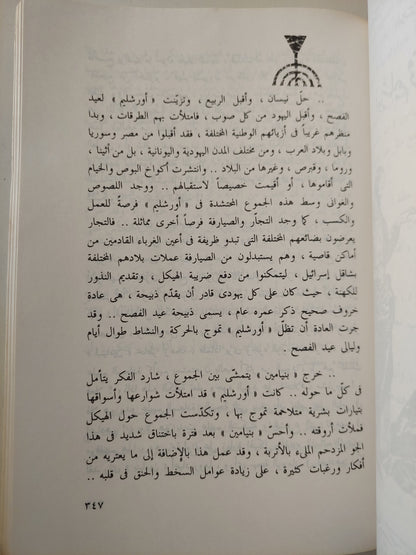 .. حلّ نيسان ، وأقبل الربيع ، وتزيّنت « أورشليم » لعيد
الفصح ، وأقبل اليهود من كل صوب ، فامتلأت بهم الطرقات ، وبدا
منظرهم غريباً فى أزيائهم الوطنية المختلفة ، فقد أقبلوا من مصر وسوريا
وبابل وبلاد العرب ، ومن مختلف المدن اليهودية واليونانية ، بل من أثينا ،
وروما ، وقبرص ، وغيرها من البلاد .. وانتشرت أكواخ البوص والخيام
التى أقاموها ، أو أقيمت خصيصاً لاستقبالهم .. ووجد اللصوص
والغوانى وسط هذه الجموع المحتشدة فى « أورشليم » فرصةً للعمل
والكسب ، كما وجد التجار والصيارفة فرصاً أخرى مماثلة .. فالتجار
يعرضون بضائعهم المختلفة التى تبدو ظريفة فى أعين الغرباء القادمين من
أماكن قاصية ، وهم يستبدلون من الصيارفة عملات بلادهم المختلفة
بشاقل إسرائيل ، ليتمكنوا من دفع ضريبة الهيكل ، وتقديم النذور
للكهنة ، حيث كان على كل يهودى قادر أن يقدّم ذبيحة ، هى عادة
خروف صحيح ذكر عمره عام ، يسمى ذبيحة عيد الفصح .. وقد
جرت العادة أن تظلّ « أورشليم » تموج بالحركة والنشاط طوال أيام
وليالى عيد الفصح .
.. خرج « بنيامين » يتمشّى بين الجموع ، شارد الفكر يتأمل
فى كلّ ما حوله .. كانت « أورشليم » قد امتلأت شوارعها وأسواقها
بتيارات بشرية متلاحمة تموج بها ، وتكدّست الجموع حول الهيكل
فملأت أروقته .. وأحسّ « بنيامين » بعد فترة باختناق شديد فى هذا
الجو المزدحم الملىء بالأتربة ، وقد عمل هذا بالإضافة إلى ما يعتريه من
أفكار ورغبات كثيرة ، على زيادة عوامل السخط والحنق فى قلبه ..
٣٤٧